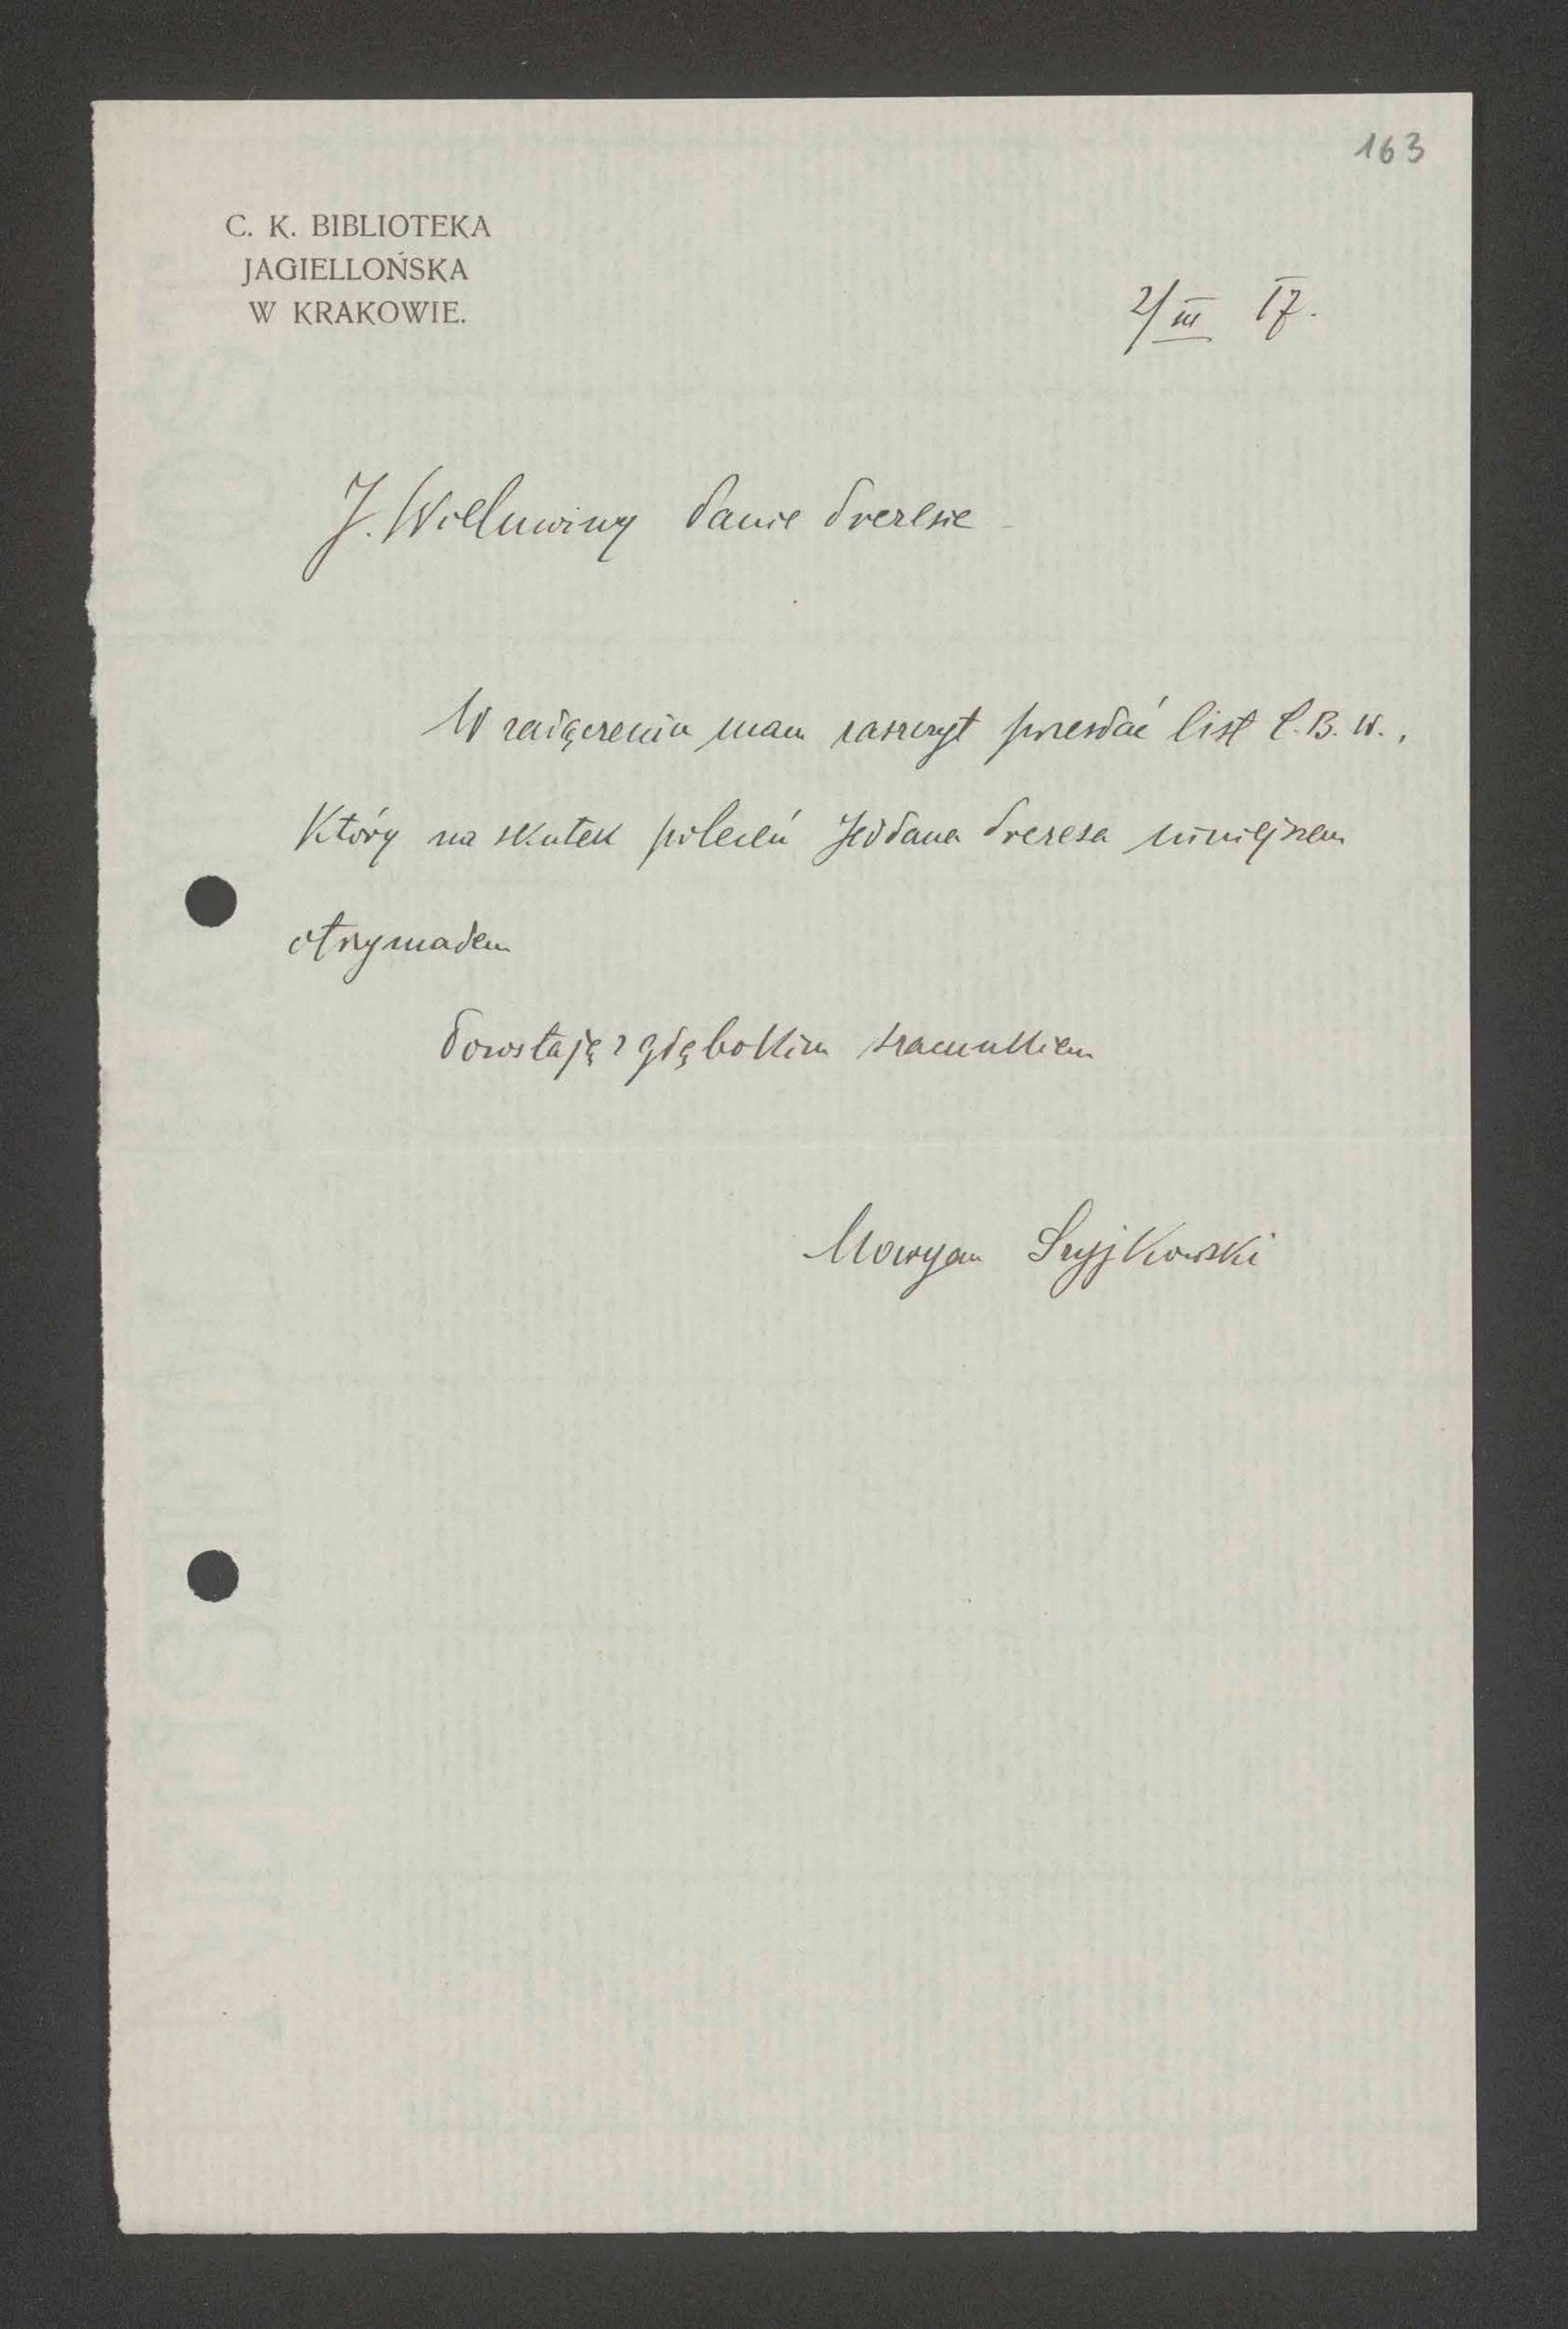 163
C. K. BIBLIOTEKA
JAGIELLOŃSKA
W KRAKOWIE.
2/III 17.
J. Wielmożny Panie Prezesie
W załączeniu mam zaszczyt przesłać list C. B. W.,
który na skutek poleceń JWPana Prezesa
otrzymałem
Pozostaję z głębokim szacunkiem
Maryan Szyjkowski